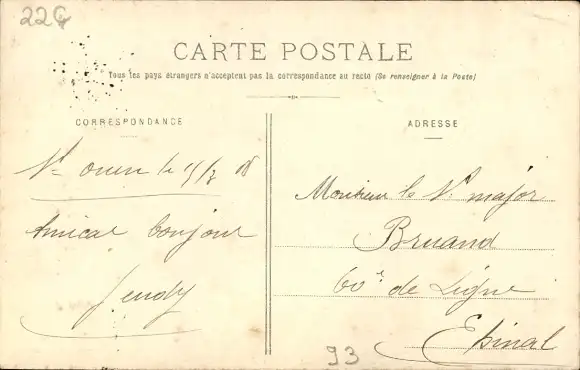 22G
CARTE POSTALE
Tous les pays étrangers n'acceptent pas la correspondance au recto (Se renseigner à la Poste)
CORRESPONDANCE
ADRESSE
St ouen le 08
Amical bonjour
Jeudy
Monsieur le major
Bruand
60e de Ligne
Epinal
93